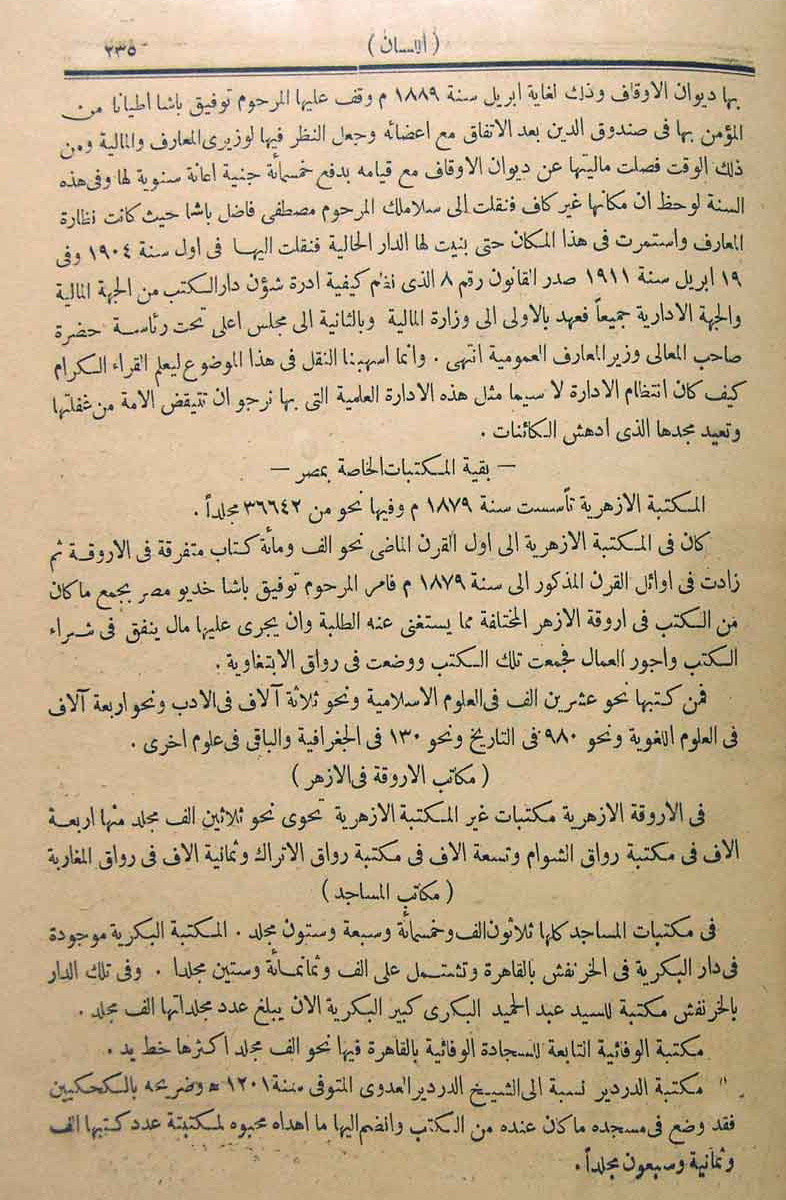 ( ألاسان ) ٢٣٥
بها ديوان الاوقاف وذلك لغاية ابريل سنة ١٨٨٩ م وقف عليها المرحوم توفيق باشا اطيانا من
المؤمن بها فى صندوق الدين بعد الاتفاق مع اعضائه وجعل النظر فيها لوزيرى المعارف والمالية ومن
ذلك الوقت فصلت ماليتها عن ديوان الاوقاف مع قيامه بدفع خمسمائة جنية اعانة سنوية لها وفى هذه
السنة لوحظ ان مكانها غير كاف فنقلت الى سلاملك المرحوم مصطفى فاضل باشا حيث كانت نظارة
المعارف واستمرت فى هذا المكان حتى بنيت لها الدار الحالية فنقلت اليها فى اول سنة ١٩٠٤ وفى
١٩ ابريل سنة ١٩١١ صدر القانون رقم ٨ الذى نظم كيفية ادرة شؤن دار الكتب من الجهة المالية
والجهة الادارية جميعاً فعهد بالاولى الى وزارة المالية وبالثانية الى مجلس اعلى تحت رئاسة حضرة
صاحب المعالى وزير المعارف العمومية انتهى . وانما اسهبنا النقل فى هذا الموضوع ليعلم القراء الكرام
كيف كان انتظام الادارة لا سيما مثل هذه الادارة العلمية التى بها نرجو ان تتيقض الامة من غفلتها
وتعيد مجدها الذى ادهش الكائنات .
— بقية المكتبات الخاصة بمصر —
المكتبة الازهرية تأسست سنة ١٨٧٩ م وفيها نحو من ٣٦٦٤٢ مجلداً .
كان فى المكتبة الازهرية الى اول القرن الماضى نحو الف ومائة كتاب متفرقة فى الاروقة ثم
زادت فى اوائل القرن المذكور الى سنة ١٨٧٩ م فامر المرحوم توفيق باشا خديو مصر بجمع ما كان
من الكتب فى اروقة الازهر المختلفة مما يستغنى عنه الطلبة وان يجرى عليها مال ينفق فى شراء
الكتب واجور العمال فجمعت تلك الكتب ووضعت فى رواق الابتغاوية .
فمن كتبها نحو عشرين الف فى العلوم الاسلامية ونحو ثلاثة آلاف فى الادب ونحو اربعة آلاف
فى العلوم اللغوية ونحو ٩٨٠ فى التاريخ ونحو ١٣٠ فى الجغرافية والباقى فى علوم اخرى .
( مكاتب الاروقة فى الازهر )
فى الاروقة الازهرية مكتبات غير المكتبة الازهرية تحوى نحو ثلاثين الف مجلد منها اربعة
الاف فى مكتبة رواق الشوام وتسعة الاف فى مكتبة رواق الاتراك وثمانية الاف فى رواق المغاربة
( مكاتب المساجد )
فى مكتبات المساجد كلها ثلاثون الف وخمسمائة وسبعة وستون مجلد . المكتبة البكرية موجودة
فى دار البكرية فى الخرنفش بالقاهرة وتشتمل على الف وثمانمائة وستين مجلدا . وفى تلك الدار
بالخرنفش مكتبة للسيد عبد الحميد البكرى كبير البكرية الان يبلغ عدد مجلداتها الف مجلد .
مكتبة الوفائية التابعة للسجادة الوفائية بالقاهرة فيها نحو الف مجلد اكثرها خط يد .
مكتبة الدردير نسبة الى الشيخ الدردير العدوى المتوفى سنة ١٢٠١ ه وضريحه بالكحكيين
فقد وضع فى مسجده ما كان عنده من الكتب وانضم اليها ما اهداه محبوه لمكتبتة عدد كتبها الف
وثمانية وسبعون مجلداً .